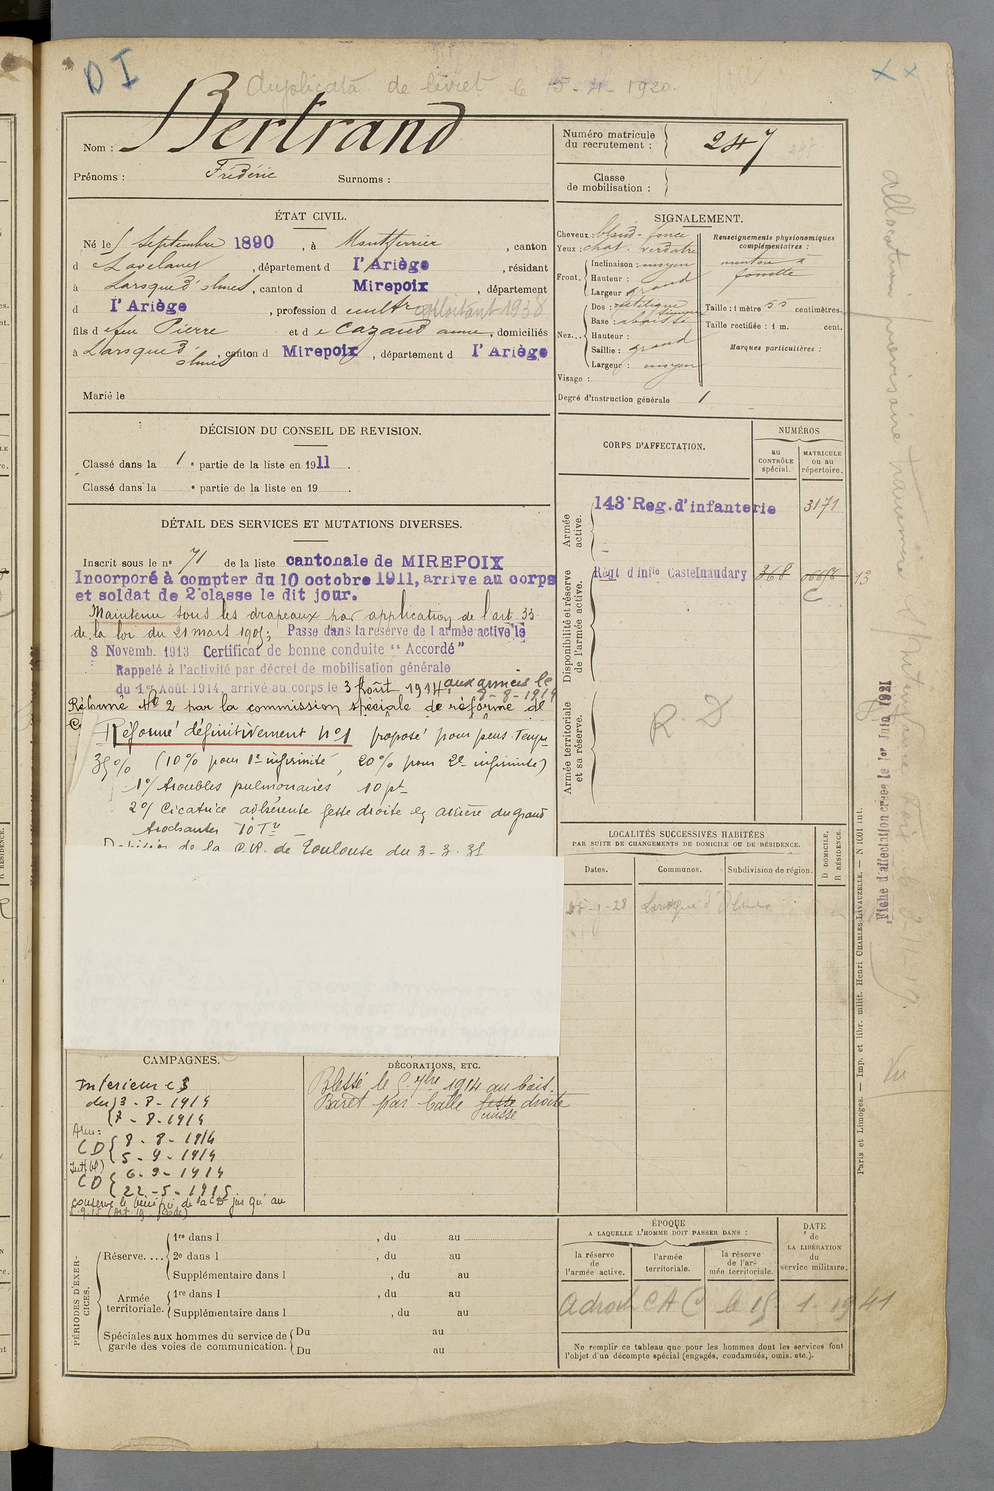 D I
duplicata de livret le 15-4-1920.
Nom : Bertrand
Prénoms : Frédéric Surnoms :
Numéro matricule du recrutement : 247
Classe de mobilisation :
ÉTAT CIVIL.
Né le Septembre 1890, à Montferrier, canton
d e Lavelanet, département d l'Ariège, résidant
à Laroque d'olmes, canton d Mirepoix, département
d l'Ariège, profession d cultr exploitant 1938
fils d e feu Pierre et d e Cazaud anne, domiciliés
à Laroque d'olmes, canton d Mirepoix, département d l'Ariège
Marié le
SIGNALEMENT.
Cheveux : blond-foncé
Yeux : chat. verdatre
Front. Inclinaison : moyen
Hauteur : grand
Largeur :
Nez... Dos : rectiligne
Base : abaissée
Hauteur :
Saillie : grand
Largeur : moyen
Visage :
Degré d'instruction générale 1
Renseignements physionomiques complémentaires :
menton à
fossette
Taille : 1 mètre 55 centimètres.
Taille rectifiée : 1 m. cent.
Marques particulières :
DÉCISION DU CONSEIL DE REVISION.
Classé dans la 1e partie de la liste en 1911.
Classé dans la e partie de la liste en 19 .
DÉTAIL DES SERVICES ET MUTATIONS DIVERSES.
Inscrit sous le n° 71 de la liste cantonale de MIREPOIX
Incorporé à compter du 10 octobre 1911, arrive au corps
et soldat de 2e classe le dit jour.
Maintenu sous les drapeaux par application de l'art 33
de la loi du 21 mars 1905; Passé dans la réserve de l'armée active le
8 Novemb. 1913 Certificat de bonne conduite "Accordé"
Rappelé à l'activité par décret de mobilisation générale
du 1er Août 1914, arrivé au corps le 3 Août 1914, aux armées le
8-8-1914
Réformé N° 2 par la commission spéciale de réforme de
C
Réformé définitivement n°1 proposé pour pens. Temp
35% (10% pour 1re infirmité, 20% pour 2e infirmité)
1°/ troubles pulmonaires 10 pt
2°/ Cicatrice adhérente fesse droite en arrière du grand
trochanter
de la C.R. de Toulouse du 3-3-31
CORPS D'AFFECTATION.
NUMÉROS
au CONTRÔLE spécial.
MATRICULE ou au répertoire.
Armée active.
143e Reg. d'infanterie 3171
Disponibilité et réserve de l'armée active.
Régt d'infie Castelnaudary 368 13
C
Armée territoriale et sa réserve.
R. D
LOCALITÉS SUCCESSIVES HABITÉES
PAR SUITE DE CHANGEMENTS DE DOMICILE OU DE RÉSIDENCE.
Dates. Communes. Subdivision de région. D DOMICILE, R RÉSIDENCE.
-1-28 Laroque d'Olmes
CAMPAGNES.
Intérieur CS
du 3-8-1914
7-8-1914
CD 8-8-1914
5-9-1914
CD 6-9-1914
22-5-1915
conserve le bénéfice de la CD jusqu'au
DÉCORATIONS, ETC.
Blessé le 5 7bre 1914 au bois
Baret par balle fesse droite
cuisse
PÉRIODES D'EXERCICES.
Réserve.... 1re dans l , du au
2e dans l , du au
Supplémentaire dans l , du au
Armée territoriale. 1re dans l , du au
Supplémentaire dans l , du au
Spéciales aux hommes du service de garde des voies de communication. Du au
Du au
ÉPOQUE
A LAQUELLE L'HOMME DOIT PASSER DANS :
la réserve de l'armée active.
l'armée territoriale.
la réserve de l'armée territoriale.
DATE de LA LIBÉRATION du service militaire.
a droit C A C le 15 1 1941
Ne remplir ce tableau que pour les hommes dont les services font
l'objet d'un décompte spécial (engagés, condamnés, omis, etc.).
Paris et Limoges. — Imp. et libr. milit. Henri CHARLES-LAVAUZELLE. — N 1001 int.
Fiche d'affectation créée le 1er Juin 1921